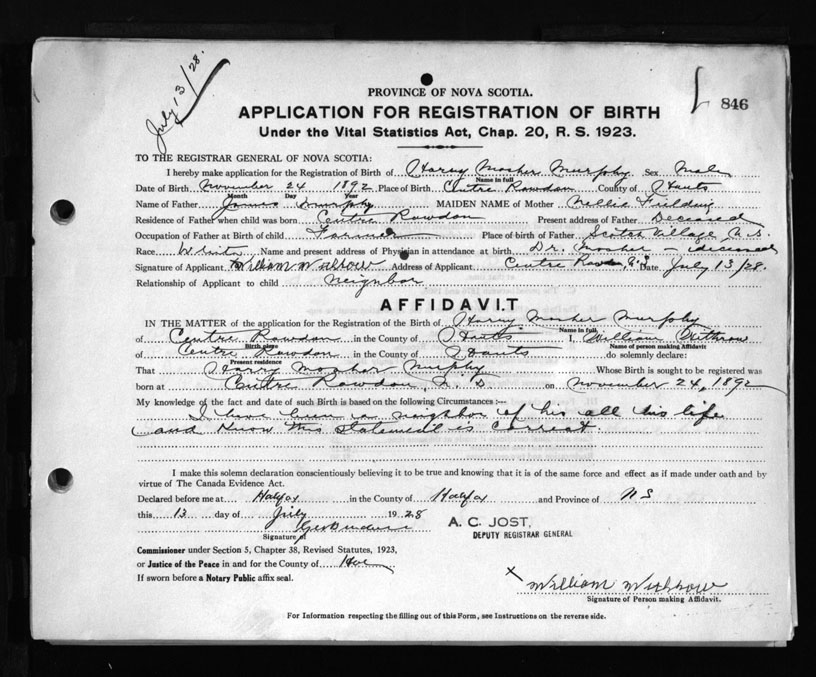 July 13/28.
PROVINCE OF NOVA SCOTIA.
846
APPLICATION FOR REGISTRATION OF BIRTH
Under the Vital Statistics Act, Chap. 20, R. S. 1923.
TO THE REGISTRAR GENERAL OF NOVA SCOTIA:
I hereby make application for the Registration of Birth of Harry Mosher Murphy Sex Male
Name in full
Date of Birth November 24 1892 Place of Birth Centre Rawdon County of Hants
Month Day Year
Name of Father James Murphy MAIDEN NAME of Mother Nellie Fielding
Residence of Father when child was born Centre Rawdon Present address of Father Deceased
Occupation of Father at Birth of Child Farmer Place of birth of Father Scotch Village, N.S.
Race White Name and present address of Physician in attendance at birth Dr. Mosher - deceased
Signature of Applicant William Withrow Address of Applicant Centre Rawdon, N.S. Date July 13/28.
Relationship of Applicant to child Neighbor
AFFIDAVIT
IN THE MATTER of the application for the Registration of the Birth of Harry Mosher Murphy
Name in full
of Centre Rawdon in the County of Hants I, William Withrow
Birth place Name of person making Affidavit
of Centre Rawdon in the County of Hants do solemnly declare:
Present residence
That Harry Mosher Murphy Whose Birth is sought to be registered was
born at Centre Rawdon, N. S on November 24, 1892
My knowledge of the fact and date of such Birth is based on the following Circumstances :—
I have been a neighbor of his all his life
and know this statement is correct.
I make this solemn declaration conscientiously believing it to be true and knowing that it is of the same force and effect as if made under oath and by
virtue of The Canada Evidence Act.
Declared before me at Halifax in the County of Halifax and Province of NS
this 13 day of July 1928
A. C. JOST,
DEPUTY REGISTRAR GENERAL
Signature of
Commissioner under Section 5, Chapter 38, Revised Statutes, 1923,
or Justice of the Peace in and for the County of
If sworn before a Notary Public affix seal.
x William Withrow
Signature of Person making Affidavit.
For Information respecting the filling out of this Form, see Instructions on the reverse side.